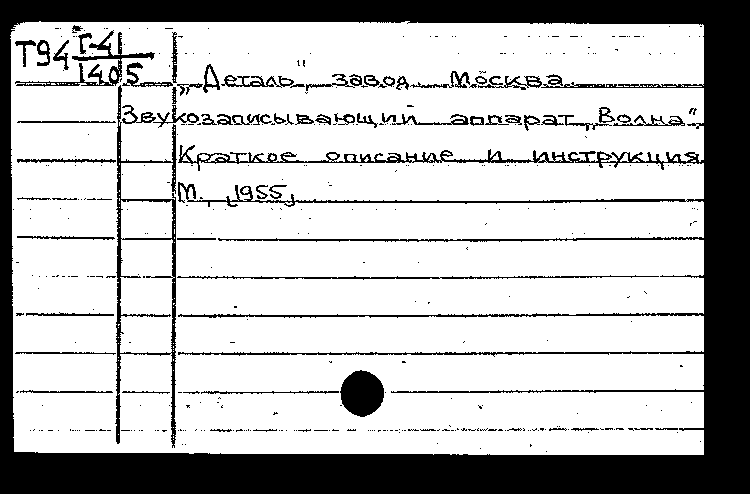 Т94 Г-4
1405
„Деталь", завод. Москва.
Звукозаписывающий аппарат „Волна".
Краткое описание и инструкция
М., [1955]